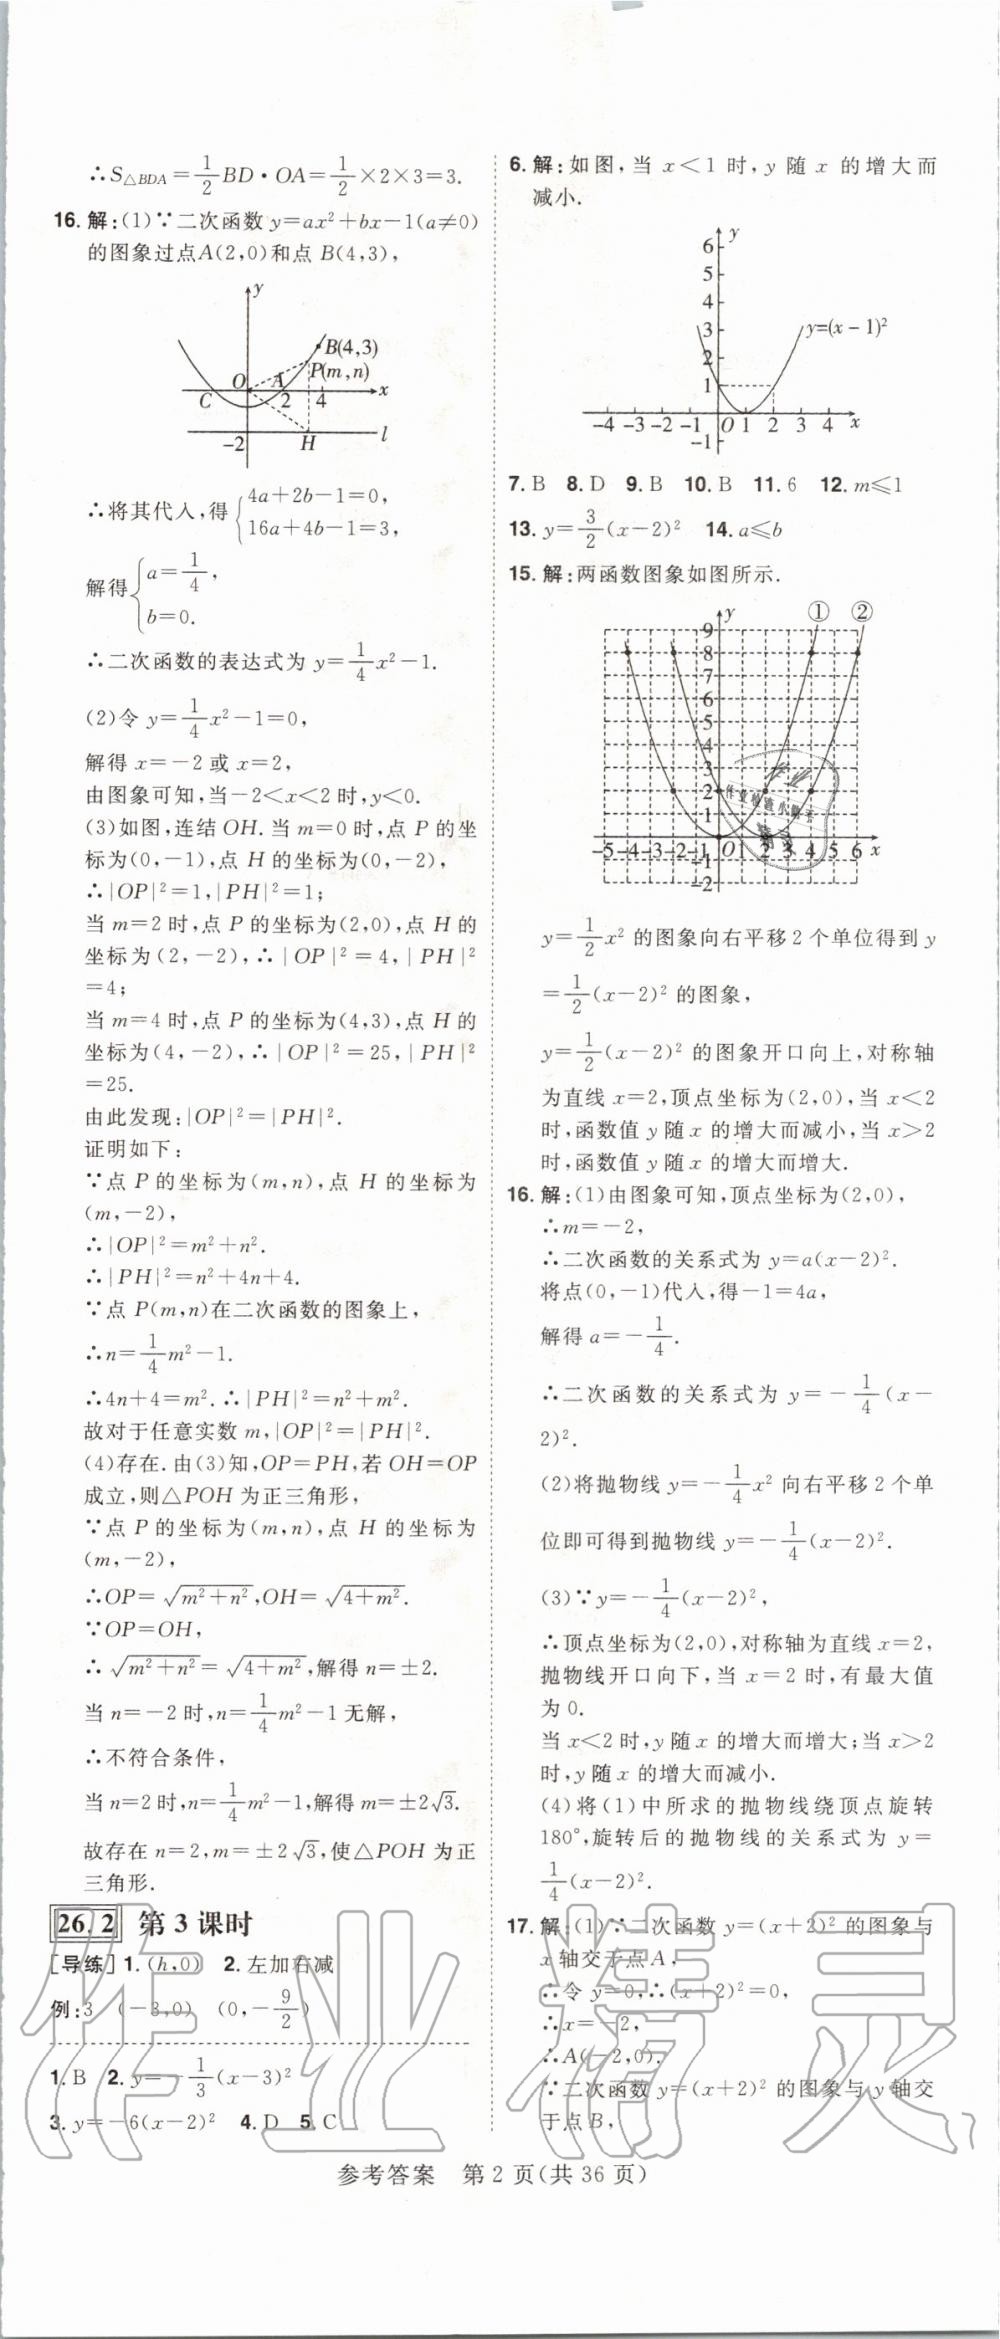 ∴S△BDA=1/2BD·OA=1/2×2×3=3.
16. 解:(1)∵二次函数 y=ax²+bx-1(a≠0)
的图象过点A(2,0)和点 B(4,3),
y
B(4,3)
P(m,n)
O A
C 2 4 x
-2 H l
∴将其代入,得{4a+2b-1=0,
16a+4b-1=3,
解得{a=1/4,
b=0.
∴二次函数的表达式为 y=1/4x²-1.
(2)令 y=1/4x²-1=0,
解得 x=-2 或 x=2,
由图象可知,当-2<x<2 时,y<0.
(3)如图,连结 OH. 当 m=0 时,点 P 的坐
标为(0,-1),点 H 的坐标为(0,-2),
∴|OP|²=1,|PH|²=1;
当 m=2 时,点 P 的坐标为(2,0),点 H 的
坐标为(2,-2),∴|OP|²=4,|PH|²
=4;
当 m=4 时,点 P 的坐标为(4,3),点 H 的
坐标为(4,-2),∴|OP|²=25,|PH|²
=25.
由此发现:|OP|²=|PH|².
证明如下:
∵点 P 的坐标为(m,n),点 H 的坐标为
(m,-2),
∴|OP|²=m²+n².
∴|PH|²=n²+4n+4.
∵点 P(m,n)在二次函数的图象上,
∴n=1/4m²-1.
∴4n+4=m². ∴|PH|²=n²+m².
故对于任意实数 m,|OP|²=|PH|².
(4)存在. 由(3)知,OP=PH,若 OH=OP
成立,则△POH 为正三角形,
∵点 P 的坐标为(m,n),点 H 的坐标为
(m,-2),
∴OP=√(m²+n²),OH=√(4+m²).
∵OP=OH,
∴√(m²+n²)=√(4+m²),解得 n=±2.
当 n=-2 时,n=1/4m²-1 无解,
∴不符合条件,
当 n=2 时,n=1/4m²-1,解得 m=±2√3.
故存在 n=2,m=±2√3,使△POH 为正
三角形.
26.2 第 3 课时
[导练] 1. (h,0) 2. 左加右减
例:3 (-3,0) (0,-9/2)
1. B 2. y=-1/3(x-3)²
3. y=-6(x-2)² 4. D 5. C
6. 解:如图,当 x<1 时,y 随 x 的增大而
减小.
y
6
5
4
3 y=(x-1)²
2
1
-4 -3 -2 -1 O 1 2 3 4 x
-1
7. B 8. D 9. B 10. B 11. 6 12. m≤1
13. y=3/2(x-2)² 14. a≤b
15. 解:两函数图象如图所示.
y ① ②
9
8
7
6
5
4
3
2
1
-5 -4 -3 -2 -1 O 1 2 3 4 5 6 x
-1
-2
y=1/2x² 的图象向右平移 2 个单位得到 y
=1/2(x-2)² 的图象,
y=1/2(x-2)² 的图象开口向上,对称轴
为直线 x=2,顶点坐标为(2,0),当 x<2
时,函数值 y 随 x 的增大而减小,当 x>2
时,函数值 y 随 x 的增大而增大.
16. 解:(1)由图象可知,顶点坐标为(2,0),
∴m=-2,
∴二次函数的关系式为 y=a(x-2)².
将点(0,-1)代入,得-1=4a,
解得 a=-1/4.
∴二次函数的关系式为 y=-1/4(x-
2)².
(2)将抛物线 y=-1/4x² 向右平移 2 个单
位即可得到抛物线 y=-1/4(x-2)².
(3)∵y=-1/4(x-2)²,
∴顶点坐标为(2,0),对称轴为直线 x=2,
抛物线开口向下,当 x=2 时,有最大值
为 0.
当 x<2 时,y 随 x 的增大而增大;当 x>2
时,y 随 x 的增大而减小.
(4)将(1)中所求的抛物线绕顶点旋转
180°,旋转后的抛物线的关系式为 y=
1/4(x-2)².
17. 解:(1)∵二次函数 y=(x+2)² 的图象与
x 轴交于点 A,
∴令 y=0,∴(x+2)²=0,
∴x=-2,
∴A(-2,0).
∵二次函数 y=(x+2)² 的图象与 y 轴交
于点 B,
作业精灵
参考答案 第 2 页(共 36 页)